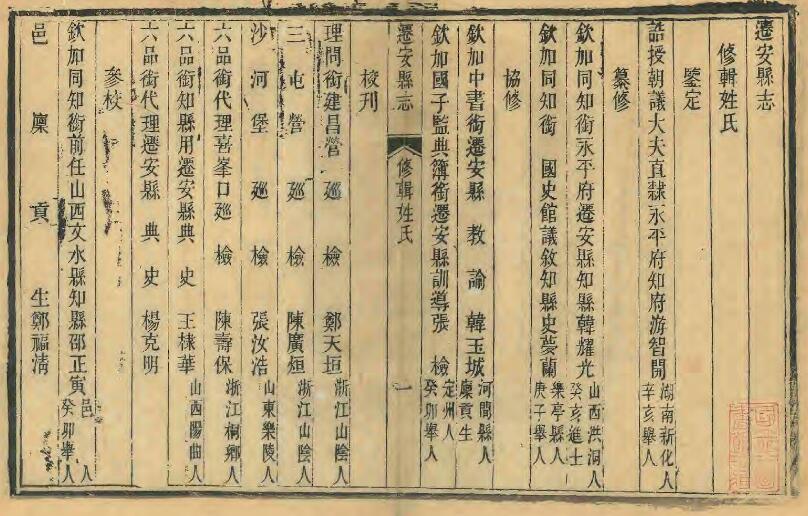 遷安縣志
修輯姓氏
鑒定
誥授朝議大夫直隸永平府知府游智開 湖南新化人 辛亥舉人
纂修
欽加同知銜永平府遷安縣知縣韓耀光 山西洪洞人 癸亥進士
欽加同知銜 國史館議敘知縣史夢蘭 樂亭縣人 庚子舉人
協修
欽加中書銜遷安縣教諭韓玉城 河間縣人 廩貢生
欽加國子監典簿銜遷安縣訓導張檢 定州人 癸卯舉人
遷安縣志 修輯姓氏 一
校刊
理問銜建昌營廵檢鄭天垣 浙江山陰人
三屯營廵檢陳廣烜 浙江山陰人
沙河堡廵檢張汝浩 山東樂陵人
六品銜代理喜峯口廵檢陳壽保 浙江桐鄉人
六品銜知縣用遷安縣典史王棣華 山西陽曲人
六品銜代理遷安縣典史楊克明
參校
欽加同知銜前任山西文水縣知縣邵正寅 邑人 癸卯舉人
邑廩貢生鄭福清 人